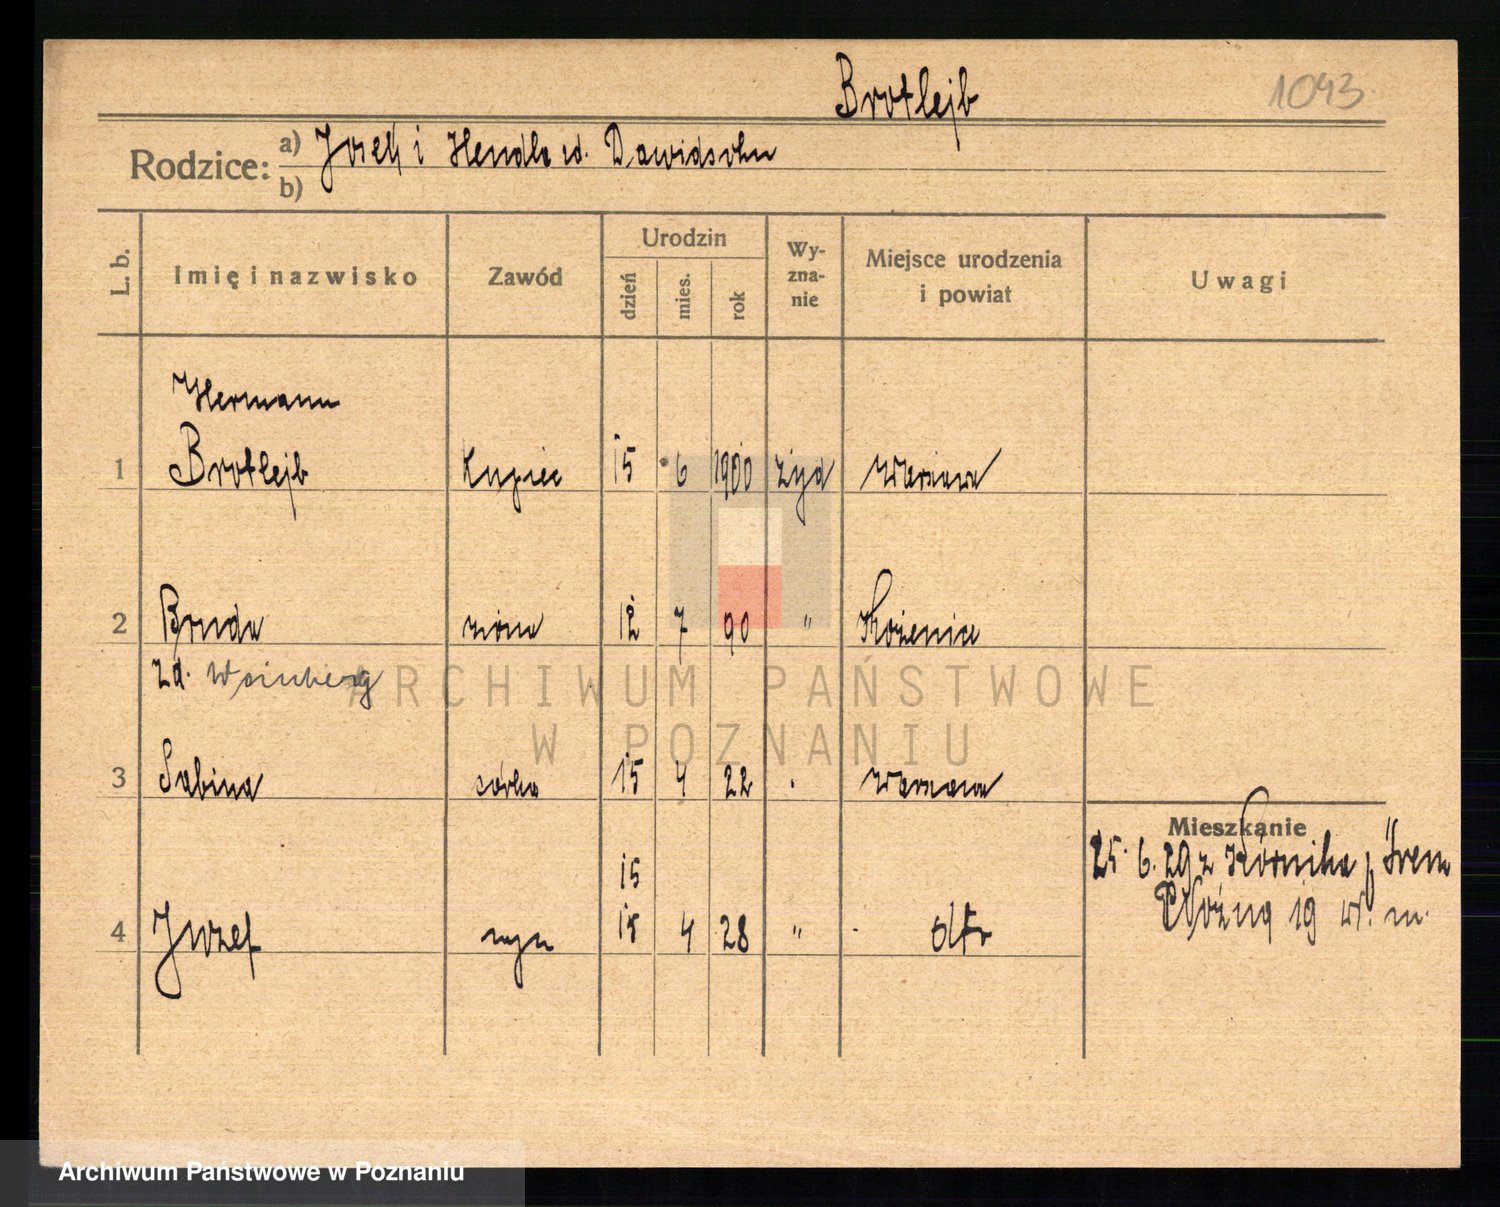 Brotlejb 1043.
Rodzice: a) Josek i Hendla zd. Dawidsohn
b)
L. b. Imię i nazwisko Zawód Urodzin dzień mies. rok Wyznanie Miejsce urodzenia i powiat Uwagi
Hermann
1 Brotlejb Kupiec 15 6 1900 żyd Warszawa
2 Brudа żona 12 7 90 " Kozienice
zd. Weinberg
3 Sabina córka 15 4 22 . Warszawa
Mieszkanie
25. 6. 29 z Kórnika, Śrem
15
4 Józef syn 15 4 28 "
Różna 19 w. m.
ARCHIWUM PAŃSTWOWE
W POZNANIU
Archiwum Państwowe w Poznaniu